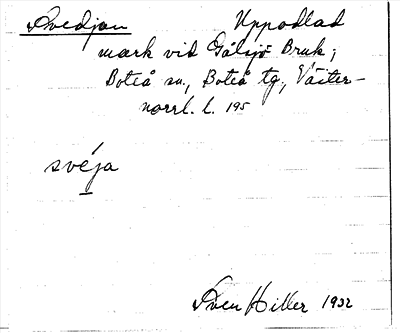 Svedjan Uppodlad
mark vid Gålsjö Bruk,
Boteå sn, Boteå tg, Väster-
norrl. l. 195
svéja
Sven Hiller 1932